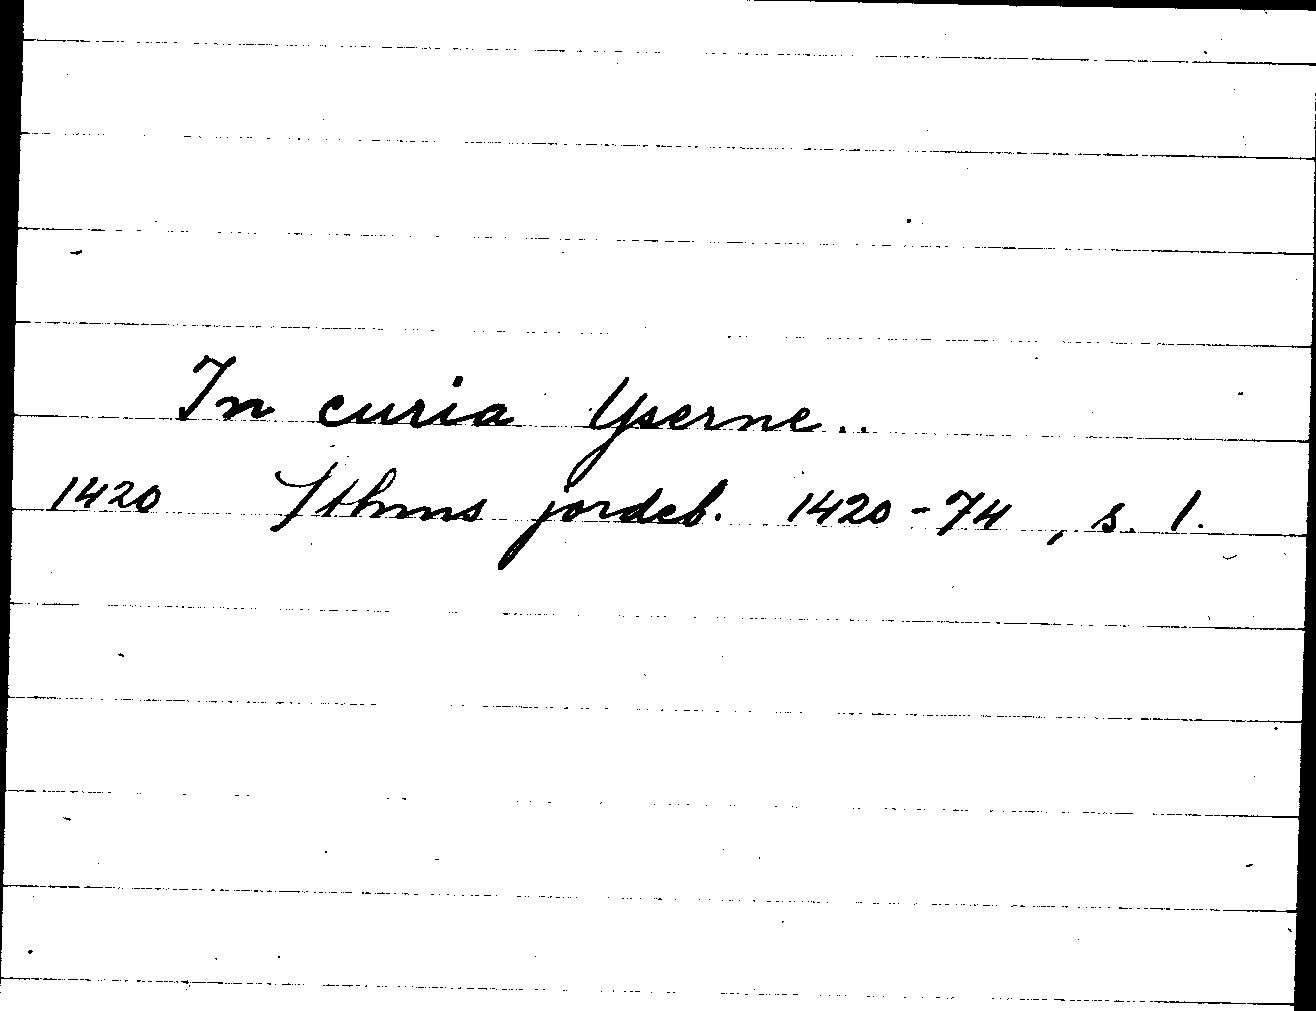 In curia Yserne..
1420 Sthms jordeb. 1420-74, s. 1.